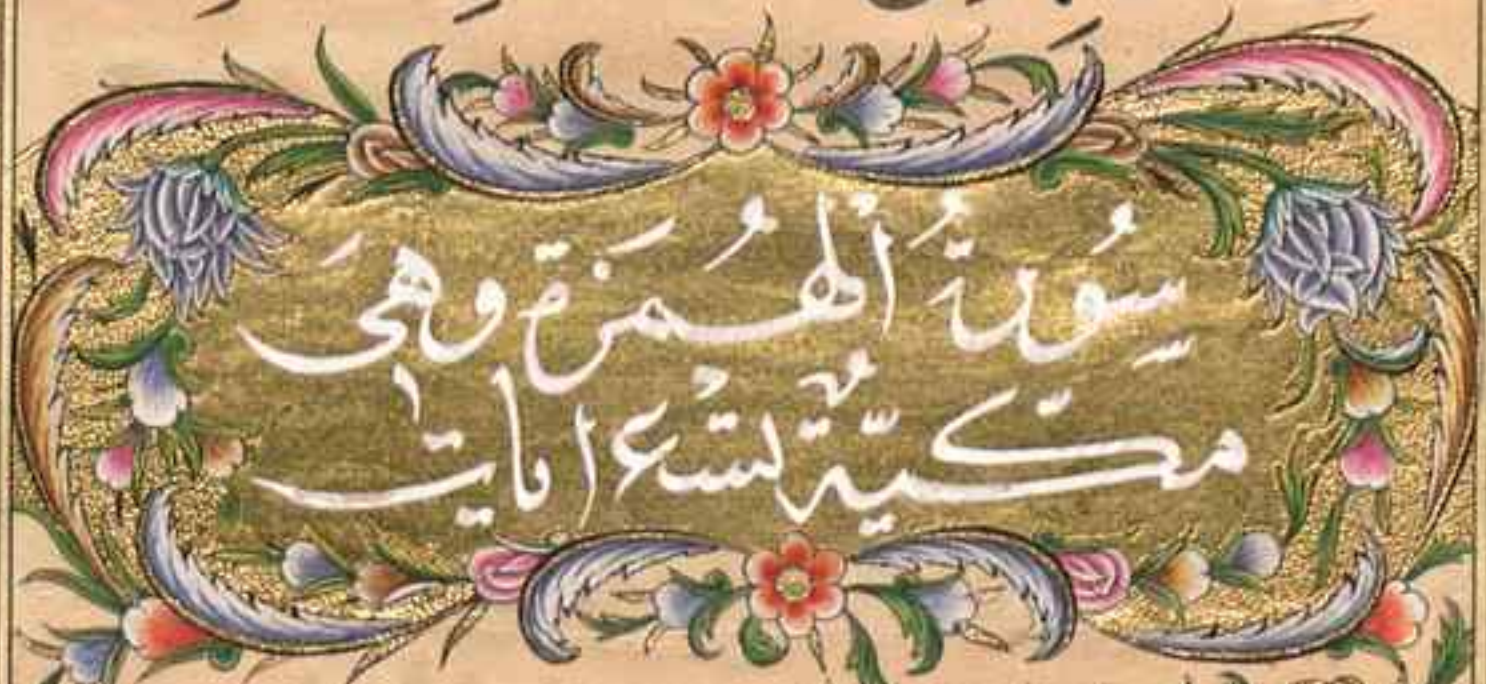 سُورَةُ ٱلْهُمَزَةِ وَهِىَ
مَكِّيَّةٌ تِسْعُ اٰيَاتٍ